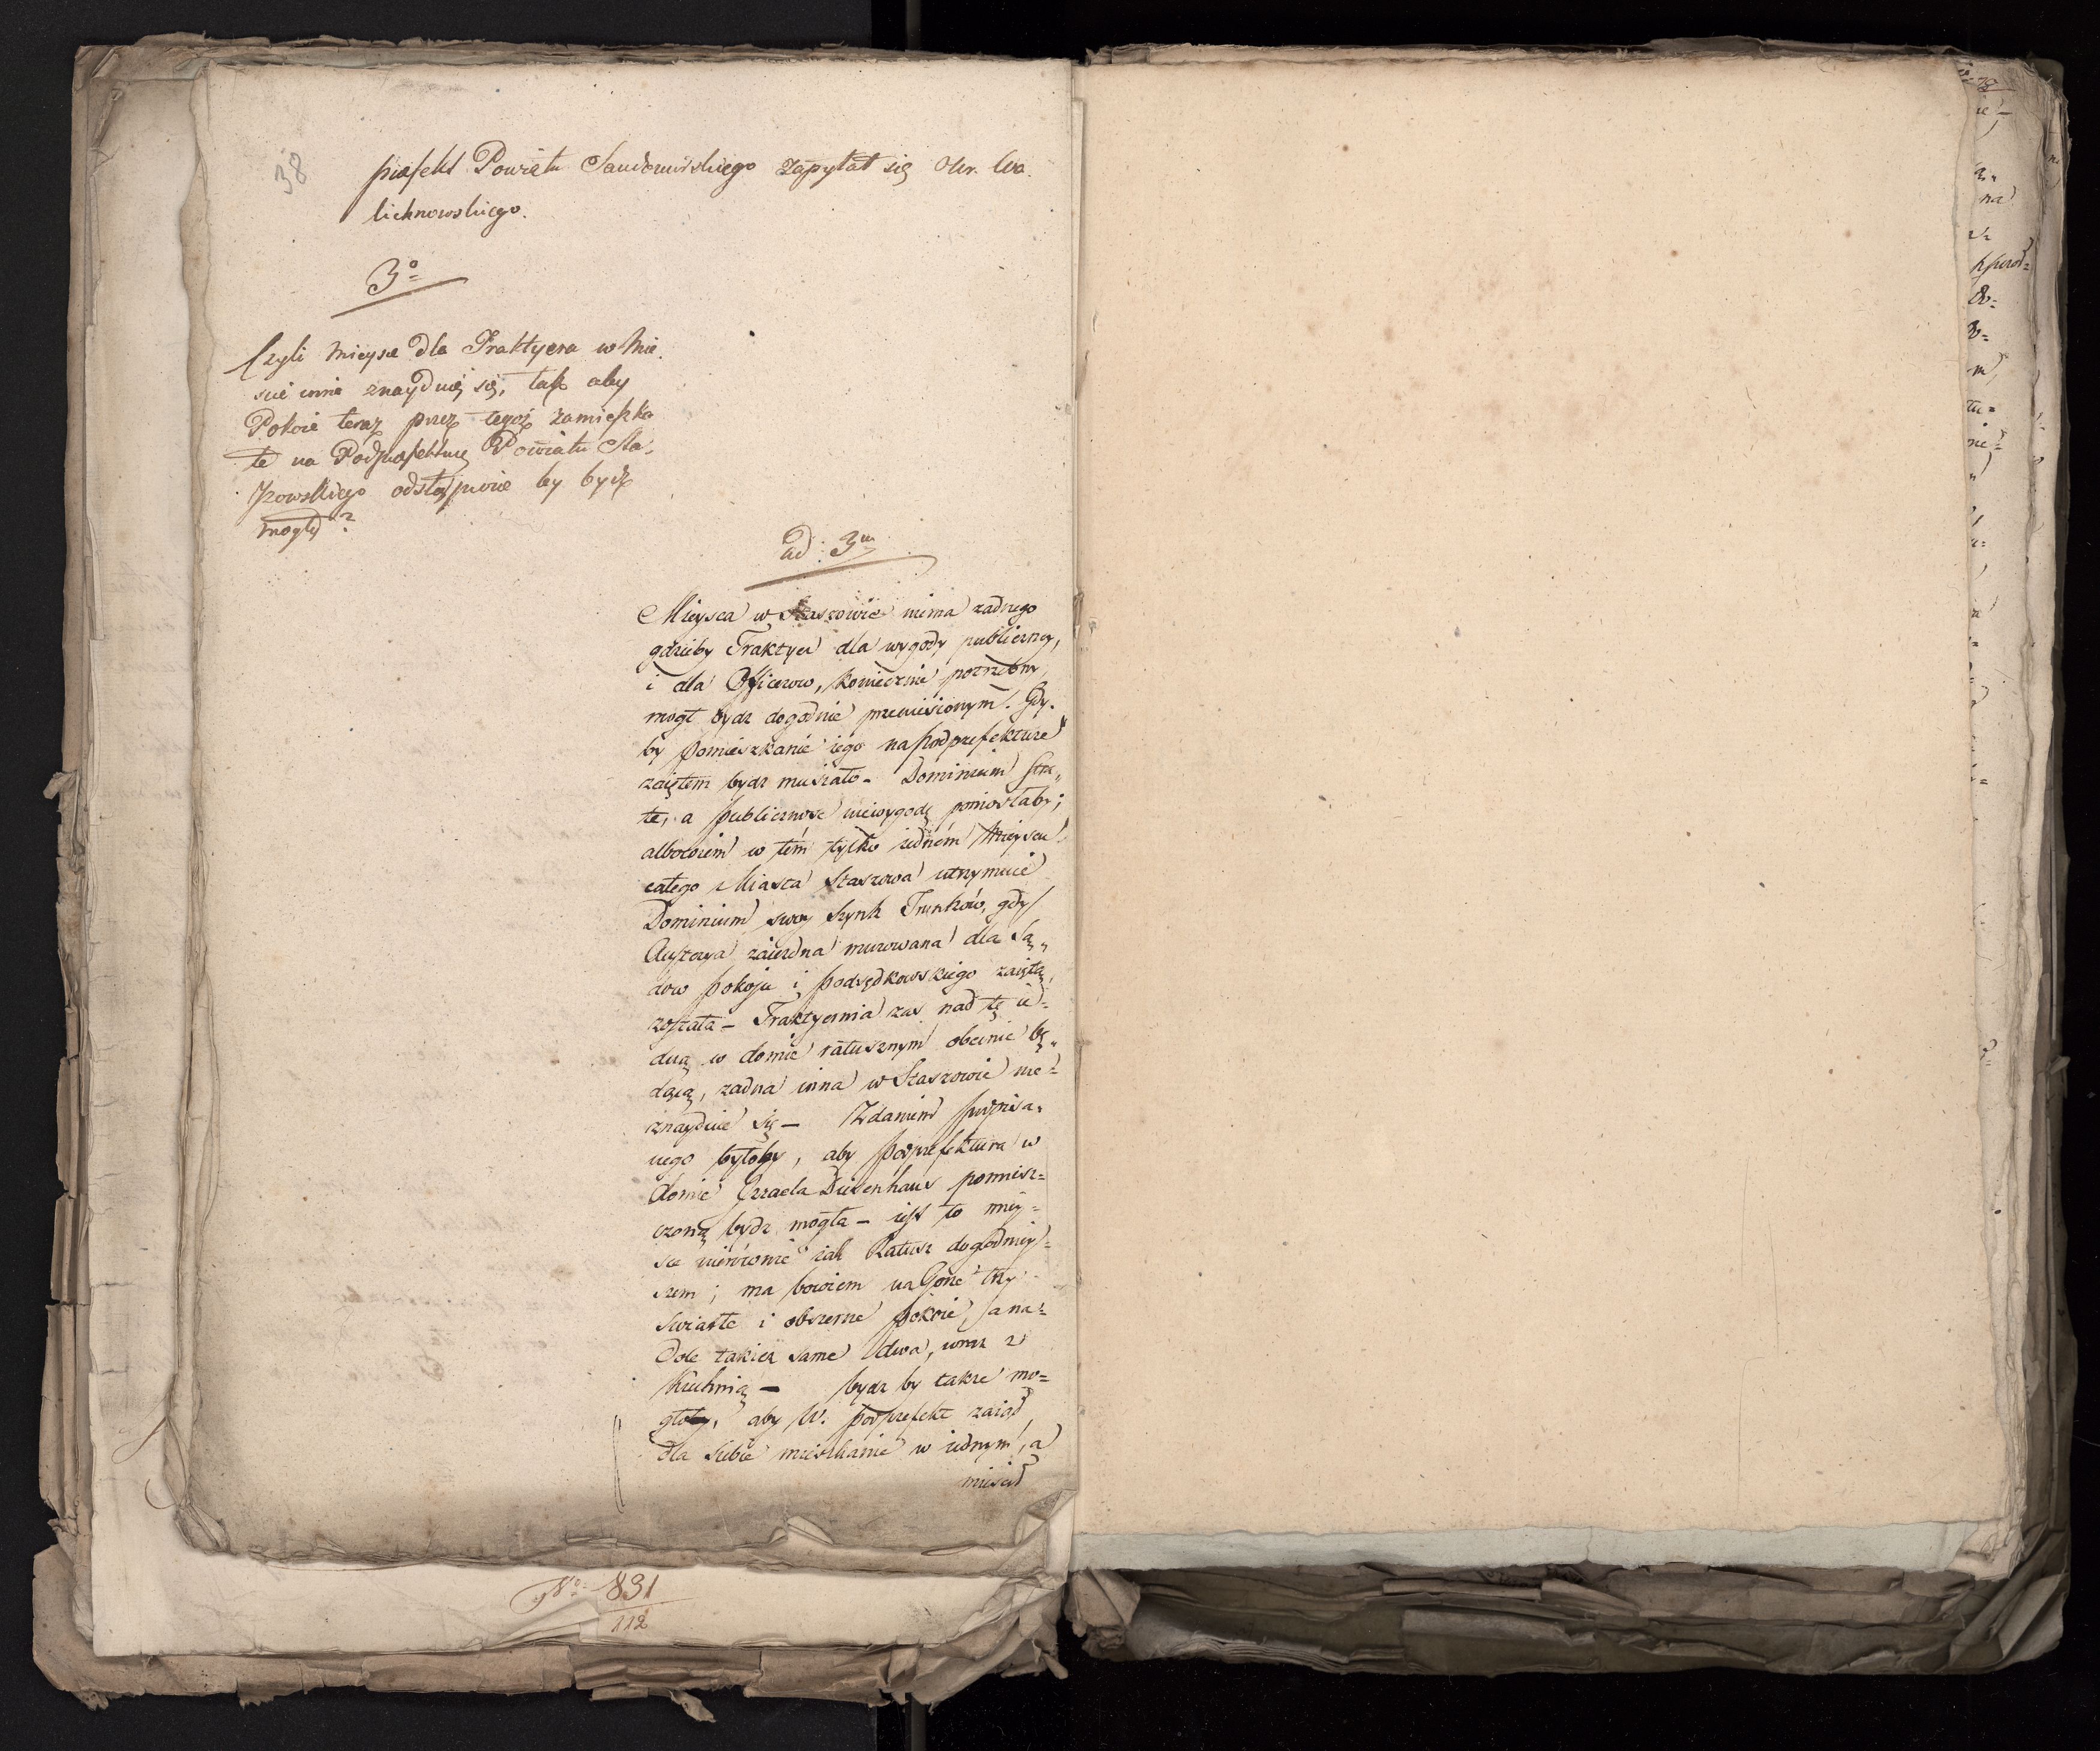 38
prefekt Powiatu Sandomirskiego zapytał się Ur. Wo.
lichnowskiego.
3o
Czyli mieysce dla Traktyera w Mie.
scie inne znayduię się, tak aby
Pokoie teraz przez tegoż zamieszka
łe na Podprefekturę Powiatu Sta,
szowskiego odstąpione by bydź
mogły?
ad: 3m
Mieysca w Staszowie niema żadnego
gdzieby Traktyer dla wygody publiczney,
i dla Officerow, koniecznie potrzebny
mogł bydz dogodnie przeniesionym. Gdy.
by pomieszkanie iego na podprefekturę
zaiętem bydz musiało - Dominium stra„
tę, a publicznosc niewygodę poniosłaby;
albowiem w tém tylko iedném Mieyscu
całego Miasta Staszowa utrzymuie
Dominium swoy Szynk Trunków, gdy
Austerya zaiezdna murowana dla Są„
dow pokoju i podsędkowskiego zaiętą
została - Traktyernia zas nad tę ie=
dną w domie ratusznym obecnie bę„
dącą, zadna inna w Staszowie nie=
znayduie się - Zdaniem podpisa„
nego byłoby, aby podprefektura w
domie Izraela Duizenhaus pomiesz=
czoną bydz mogła - iest to miey=
sce nierównie iak Ratusz dogodniey=
szem; ma bowiem na Gorze trzy
swiatłe i obszerne pokoie, a na=
Dole takiez same dwa, wraz z
Kuchnią - bydz by takze mo=
gło, aby W. podprefekt zaiął
dla siebie mieszkanie w iednym, a
miescił
No 831
112